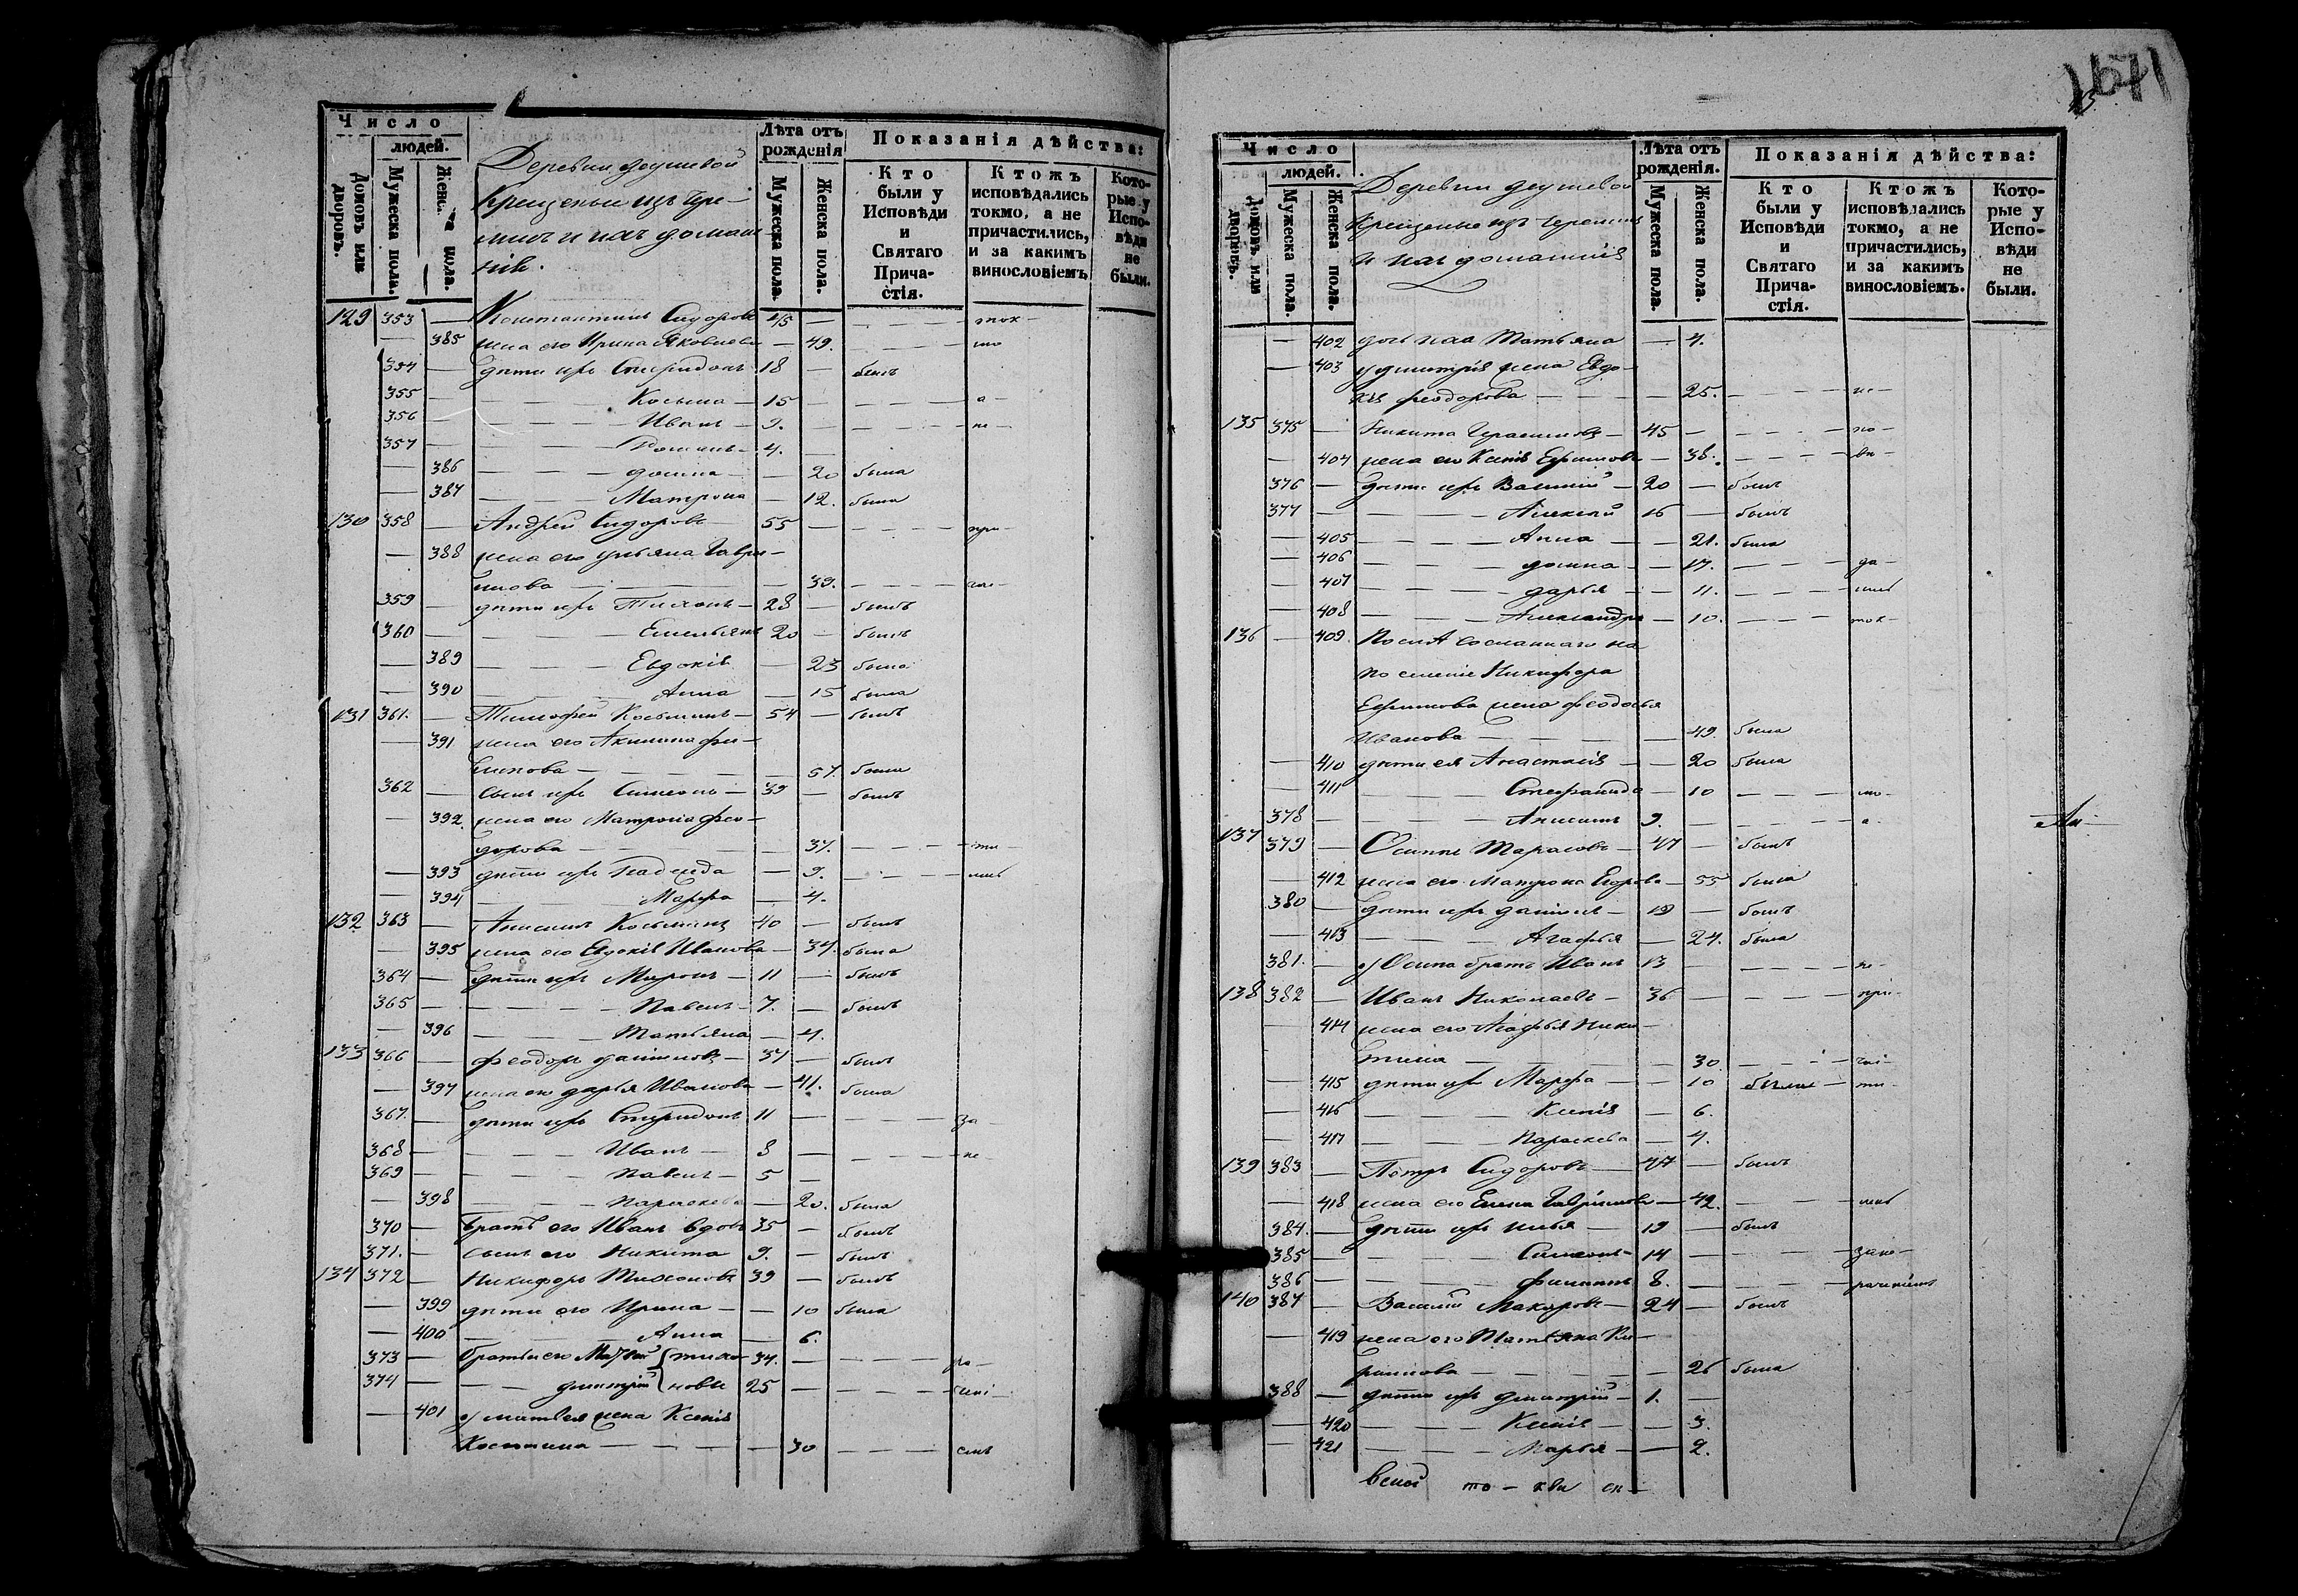 Число
людей.
Домовъ или дворовъ.
Мужеска пола.
Женска пола.
Деревни
Крещеные изъ Чере-
мисъ и ихъ домаш-
нiе.
Лѣта отъ рожденія
Мужеска пола.
Женска пола.
Показанія дѣйства:
Кто были у Исповѣди и Святаго Прича-стія.
Ктожъ исповѣдались токмо, а не причастились, и за какимъ винословіемъ
Кото-рые у Испо-вѣди не были.
129 353 — Константинъ Сидоровъ 45 — ток-
— 385 жена его Ирина Яковлева — 49. мо
354 — дѣти ихъ Спиридонъ 18 — былъ
355 — Косьма — 15 — а —
356 — Иванъ — 9. — не —
357 — Романъ — 4. —
— 386 — Домна — 20 была
— 387 — Матрона — 12. была
130 358 — Андрей Сидоровъ 55 — при-
— 388 жена его Ульяна Гаври-
лова — 39.
359 — дѣти ихъ Тихонъ — 28 — былъ
360 — Емельянъ 20 — былъ
— 389 — Евдокія — 23 была
— 390 — Анна — 15 была
131 361. — Тимофей Косьминъ — 54 — былъ
— 391 жена его Акилина Фи-
липова — 57. была
362 — сынъ ихъ Симеонъ — 39 — былъ
— 392. жена его Матрона Фео-
дорова — 37. — ти-
— 393 дѣти ихъ Надежда — 9. — лись
— 394 — Марфа — 4.
132 363 — Анисимъ Косьминъ 40 — былъ
— 395 жена его Евдокія Иванова — 37. была
364 — дѣти ихъ Миронъ — 11 — былъ
365 — Павелъ — 7. — былъ
— 396 — Татьяна — 4.
133 366 — Феодоръ Даниловъ — 37 — былъ
— 397 жена его Дарья Иванова — 41. была
367. — дѣти ихъ Спиридонъ 11 — за-
368 — Иванъ — 8 — не-
369 — Павелъ — 5 —
— 398 — Параскева — 20. была
370 — братъ его Иванъ вдовъ 35 — былъ
371. — сынъ его Никита 9. — былъ
134 372 — Никифоръ Тихоновъ 39 — былъ
— 399 дѣти его Ирина — 10 была
— 400 — Анна — 6.
373 — братья его Матвѣй } тихо- 34. —
374 — Димитрій } новы 25 —
— 401 у Матвея жена Ксенія
Костина — 30

Число
людей.
Домовъ или дворовъ.
Мужеска пола.
Женска пола.
Деревни
Крещеные изъ Черемисъ
и ихъ домашнія
Лѣта отъ рожденія.
Мужеска пола.
Женска пола.
Показанія дѣйства:
Кто были у Исповѣди и Святаго Прича-стія.
Ктожъ исповѣдались токмо, а не причастились, и за какимъ винословіемъ.
Кото-рые у Испо-вѣди не были.
— 402 дочь ихъ Татьяна — 4.
— 403 у Димитрія жена Евдо-
кія Феодорова — 25. — не-
135 375 — Никита Герасимовъ — 45 — по-
— 404 жена его Ксенія Ефимова — 38.
376 — дѣти ихъ Василій — 20 — былъ
377 — Алексѣй 16 — былъ
— 405 — Анна — 21. была
— 406 — Домна — 17.
— 407 — Дарья — 11.
— 408 — Александра — 10. — ток-
136 — 409. Посля Сосланнаго на
поселеніе Никифора
Ефимова жена Феодосья
Иванова — 49. была
— 410 дѣти ея Анастасія — 20 была
— 411 — Стефанида — 10 — мо-
378 — Анисимъ 9. — а-
137 379 — Осипъ Тарасовъ — 47 — былъ
— 412 жена его Матрона Егорова — 55 была
380 — дѣти ихъ Даніилъ — 19 — былъ
— 413 — Агафья — 24. была
381. — у Осипа братъ Иванъ 13 — не-
138 382 — Иванъ Николаевъ — 36 — при-
— 414 жена его Агафья Ники-
тина — 30. — час-
— 415 дѣти ихъ Марфа — 10 — ти-
— 416 — Ксенія — 6.
— 417 — Параскева — 4.
139 383 — Петръ Сидоровъ — 47 — былъ
— 418 жена его Елена Гаврилова — 42. — лись
384. — дѣти ихъ Илья — 19 — былъ
385 — Симеонъ — 14
386 — Филипъ 8.
140 387 — Василій Макаровъ — 24 — былъ
— 419 жена его Татьяна Ки-
рилова — 26 была
388 — дѣти ихъ Димитрій — 1. —
— 420 — Ксенія — 3.
— 421 — Марья — 2.